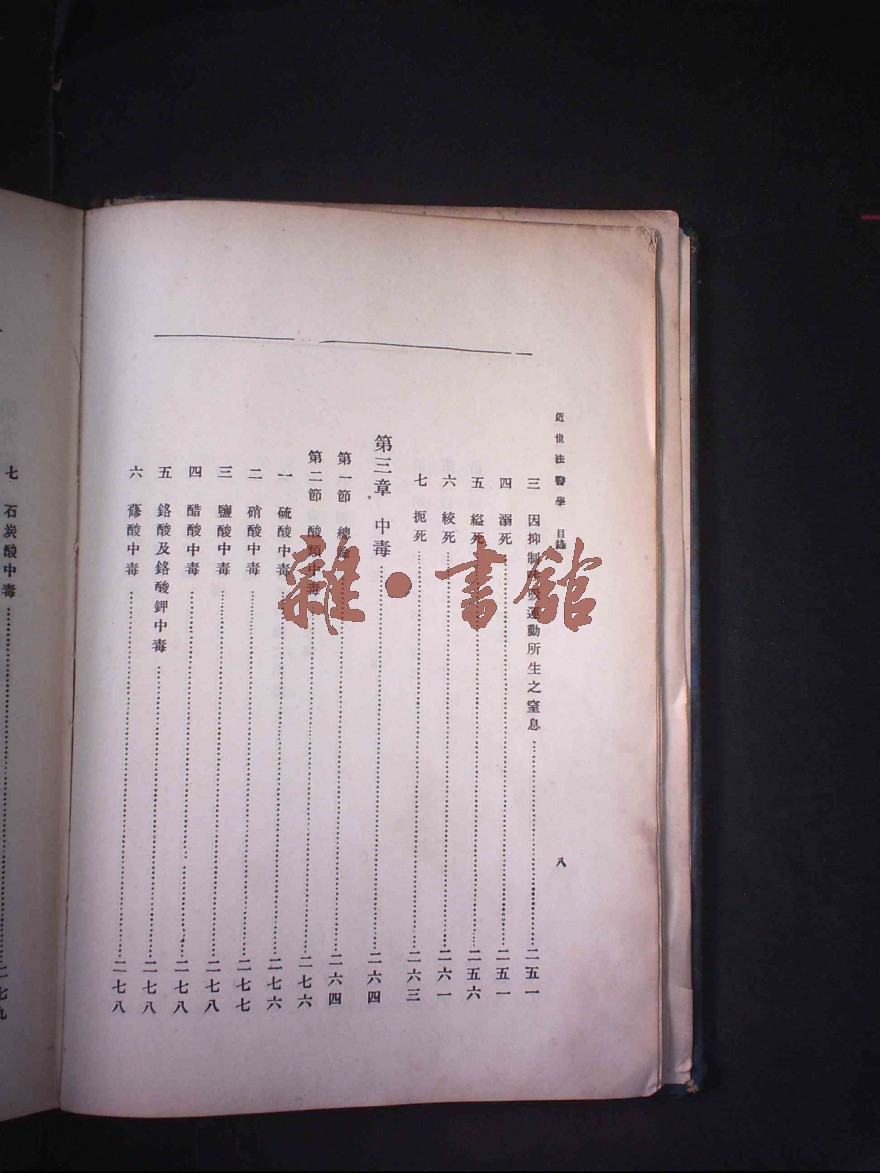 近世法醫學 目錄 八
三 因抑制呼吸運動所生之窒息……二五一
四 溺死……二五一
五 縊死……二五六
六 絞死……二六一
七 扼死……二六三
第三章 中毒……二六四
第一節 總論……二六四
第二節 酸類中毒……二七六
一 硫酸中毒……二七六
二 硝酸中毒……二七七
三 鹽酸中毒……二七八
四 醋酸中毒……二七八
五 鉻酸及鉻酸鉀中毒……二七八
六 蓚酸中毒……二七八
七 石炭酸中毒……二七九
雜·書館